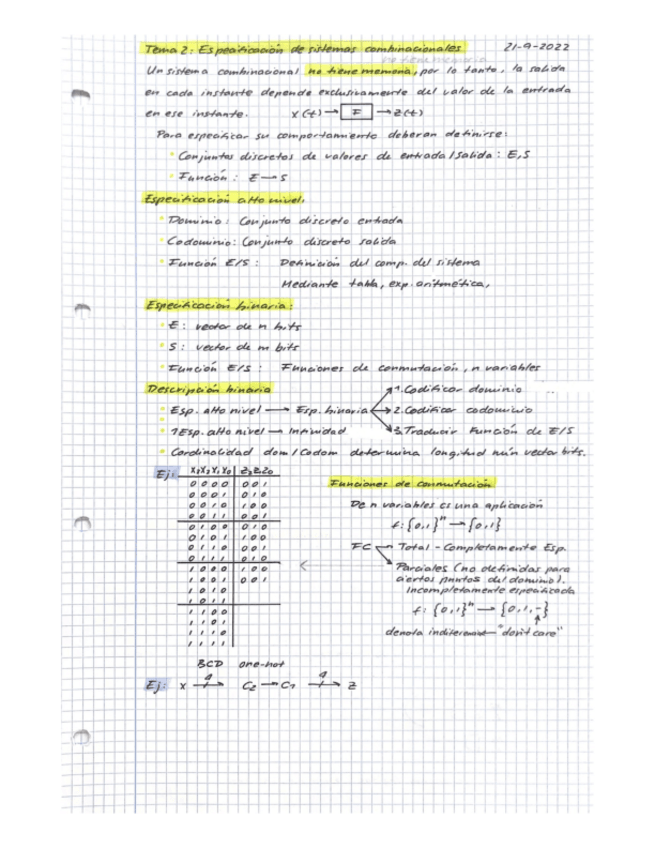 Tema 2: Especificación de sistemas combinacionales 21-9-2022
Un sistema combinacional no tiene memoria, por lo tanto, la salida
en cada instante depende exclusivamente del valor de la entrada
en ese instante. x(t) → F → z(t)
Para especificar su comportamiento deberan definirse:
• Conjuntos discretos de valores de entrada/salida: E,S
• Función: E → S
Especificación alto nivel:
• Dominio: Conjunto discreto entrada
• Codominio: Conjunto discreto salida
• Función E/S: Definición del comp. del sistema
Mediante tabla, exp. aritmética,
Especificación binaria:
• E: vector de n bits
• S: vector de m bits
• Función E/S: Funciones de conmutación, n variables
Descripción binaria
1. Codificar dominio
• Esp. alto nivel → Esp. binaria 2. Codificar codominio
• 1 Esp. alto nivel → Infinidad 3. Traducir Función de E/S
• Cardinalidad dom/Codom determina longitud mín vector bits.
Ej: X3X2X1X0 Z2Z1Z0
0000 001
0001 010
0010 100
0011 001
0100 010
0101 100
0110 001
0111 010
1000 100
1001 001
1010
1011
1100
1101
1110
1111
Funciones de conmutación
De n variables es una aplicación
f: {0,1}ⁿ → {0,1}
FC Total - Completamente Esp.
Parciales (no definidas para
ciertos puntos del dominio).
Incompletamente especificada
f: {0,1}ⁿ → {0,1,-}
denota indiferencia "don't care"
BCD one-hot
Ej: x 4 C2 → C1 4 z